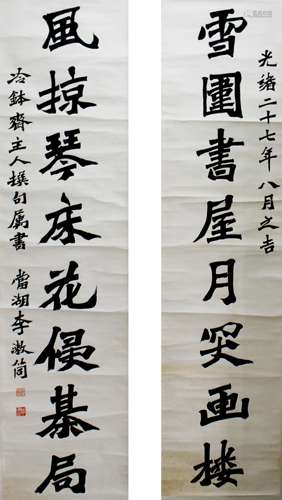 光緒二十七年八月之吉
雪圍書屋月画楼
風掠琴床花棊局
冷鉢齋主人撰句属書
當湖李